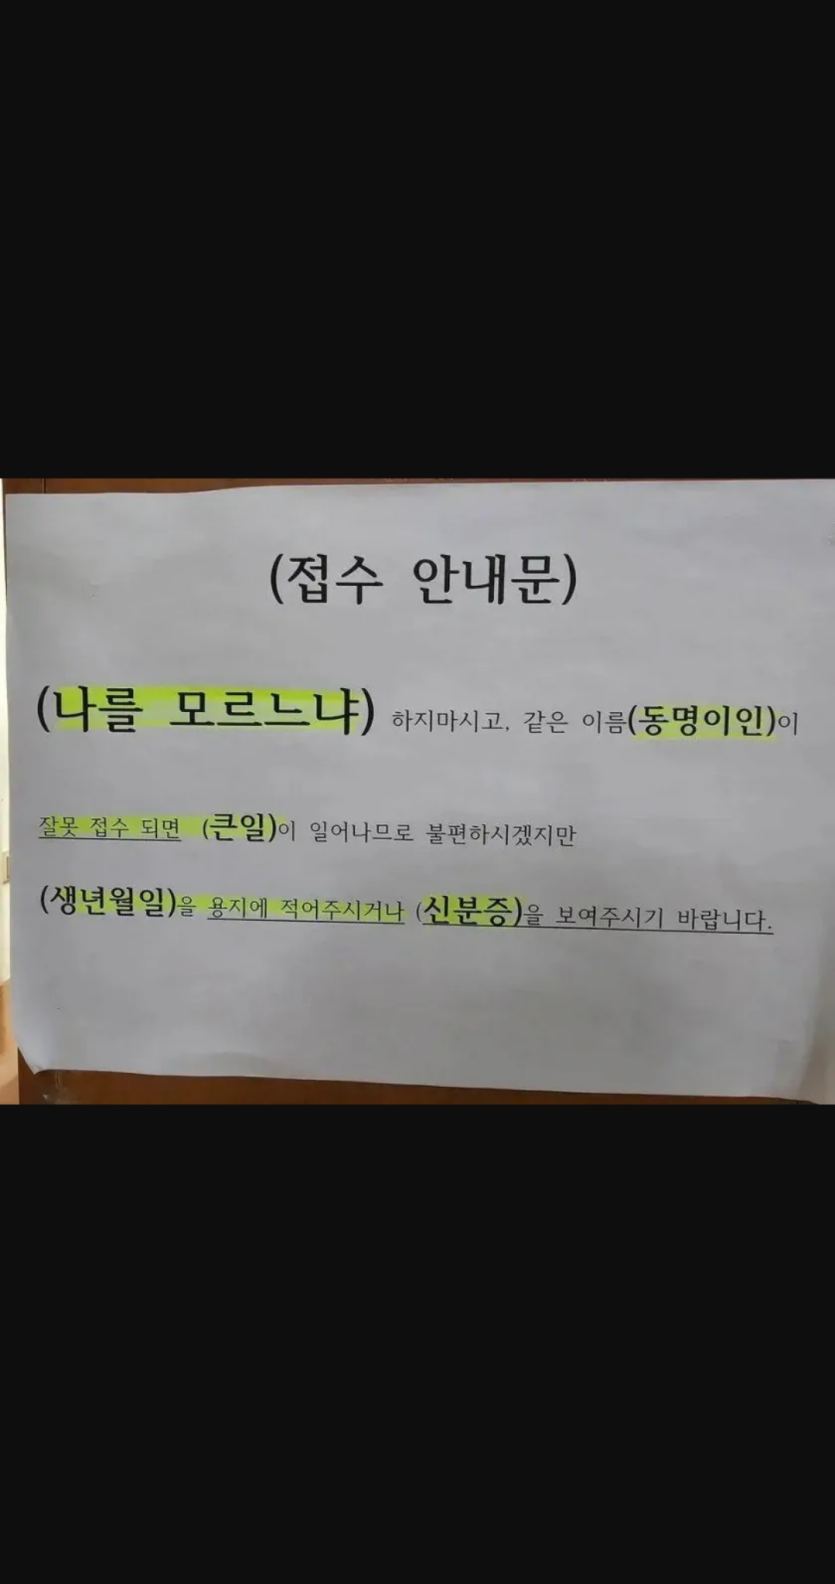 (접수 안내문)
(나를 모르느냐) 하지마시고, 같은 이름(동명이인)이
잘못 접수 되면 (큰일)이 일어나므로 불편하시겠지만
(생년월일)을 용지에 적어주시거나 (신분증)을 보여주시기 바랍니다.